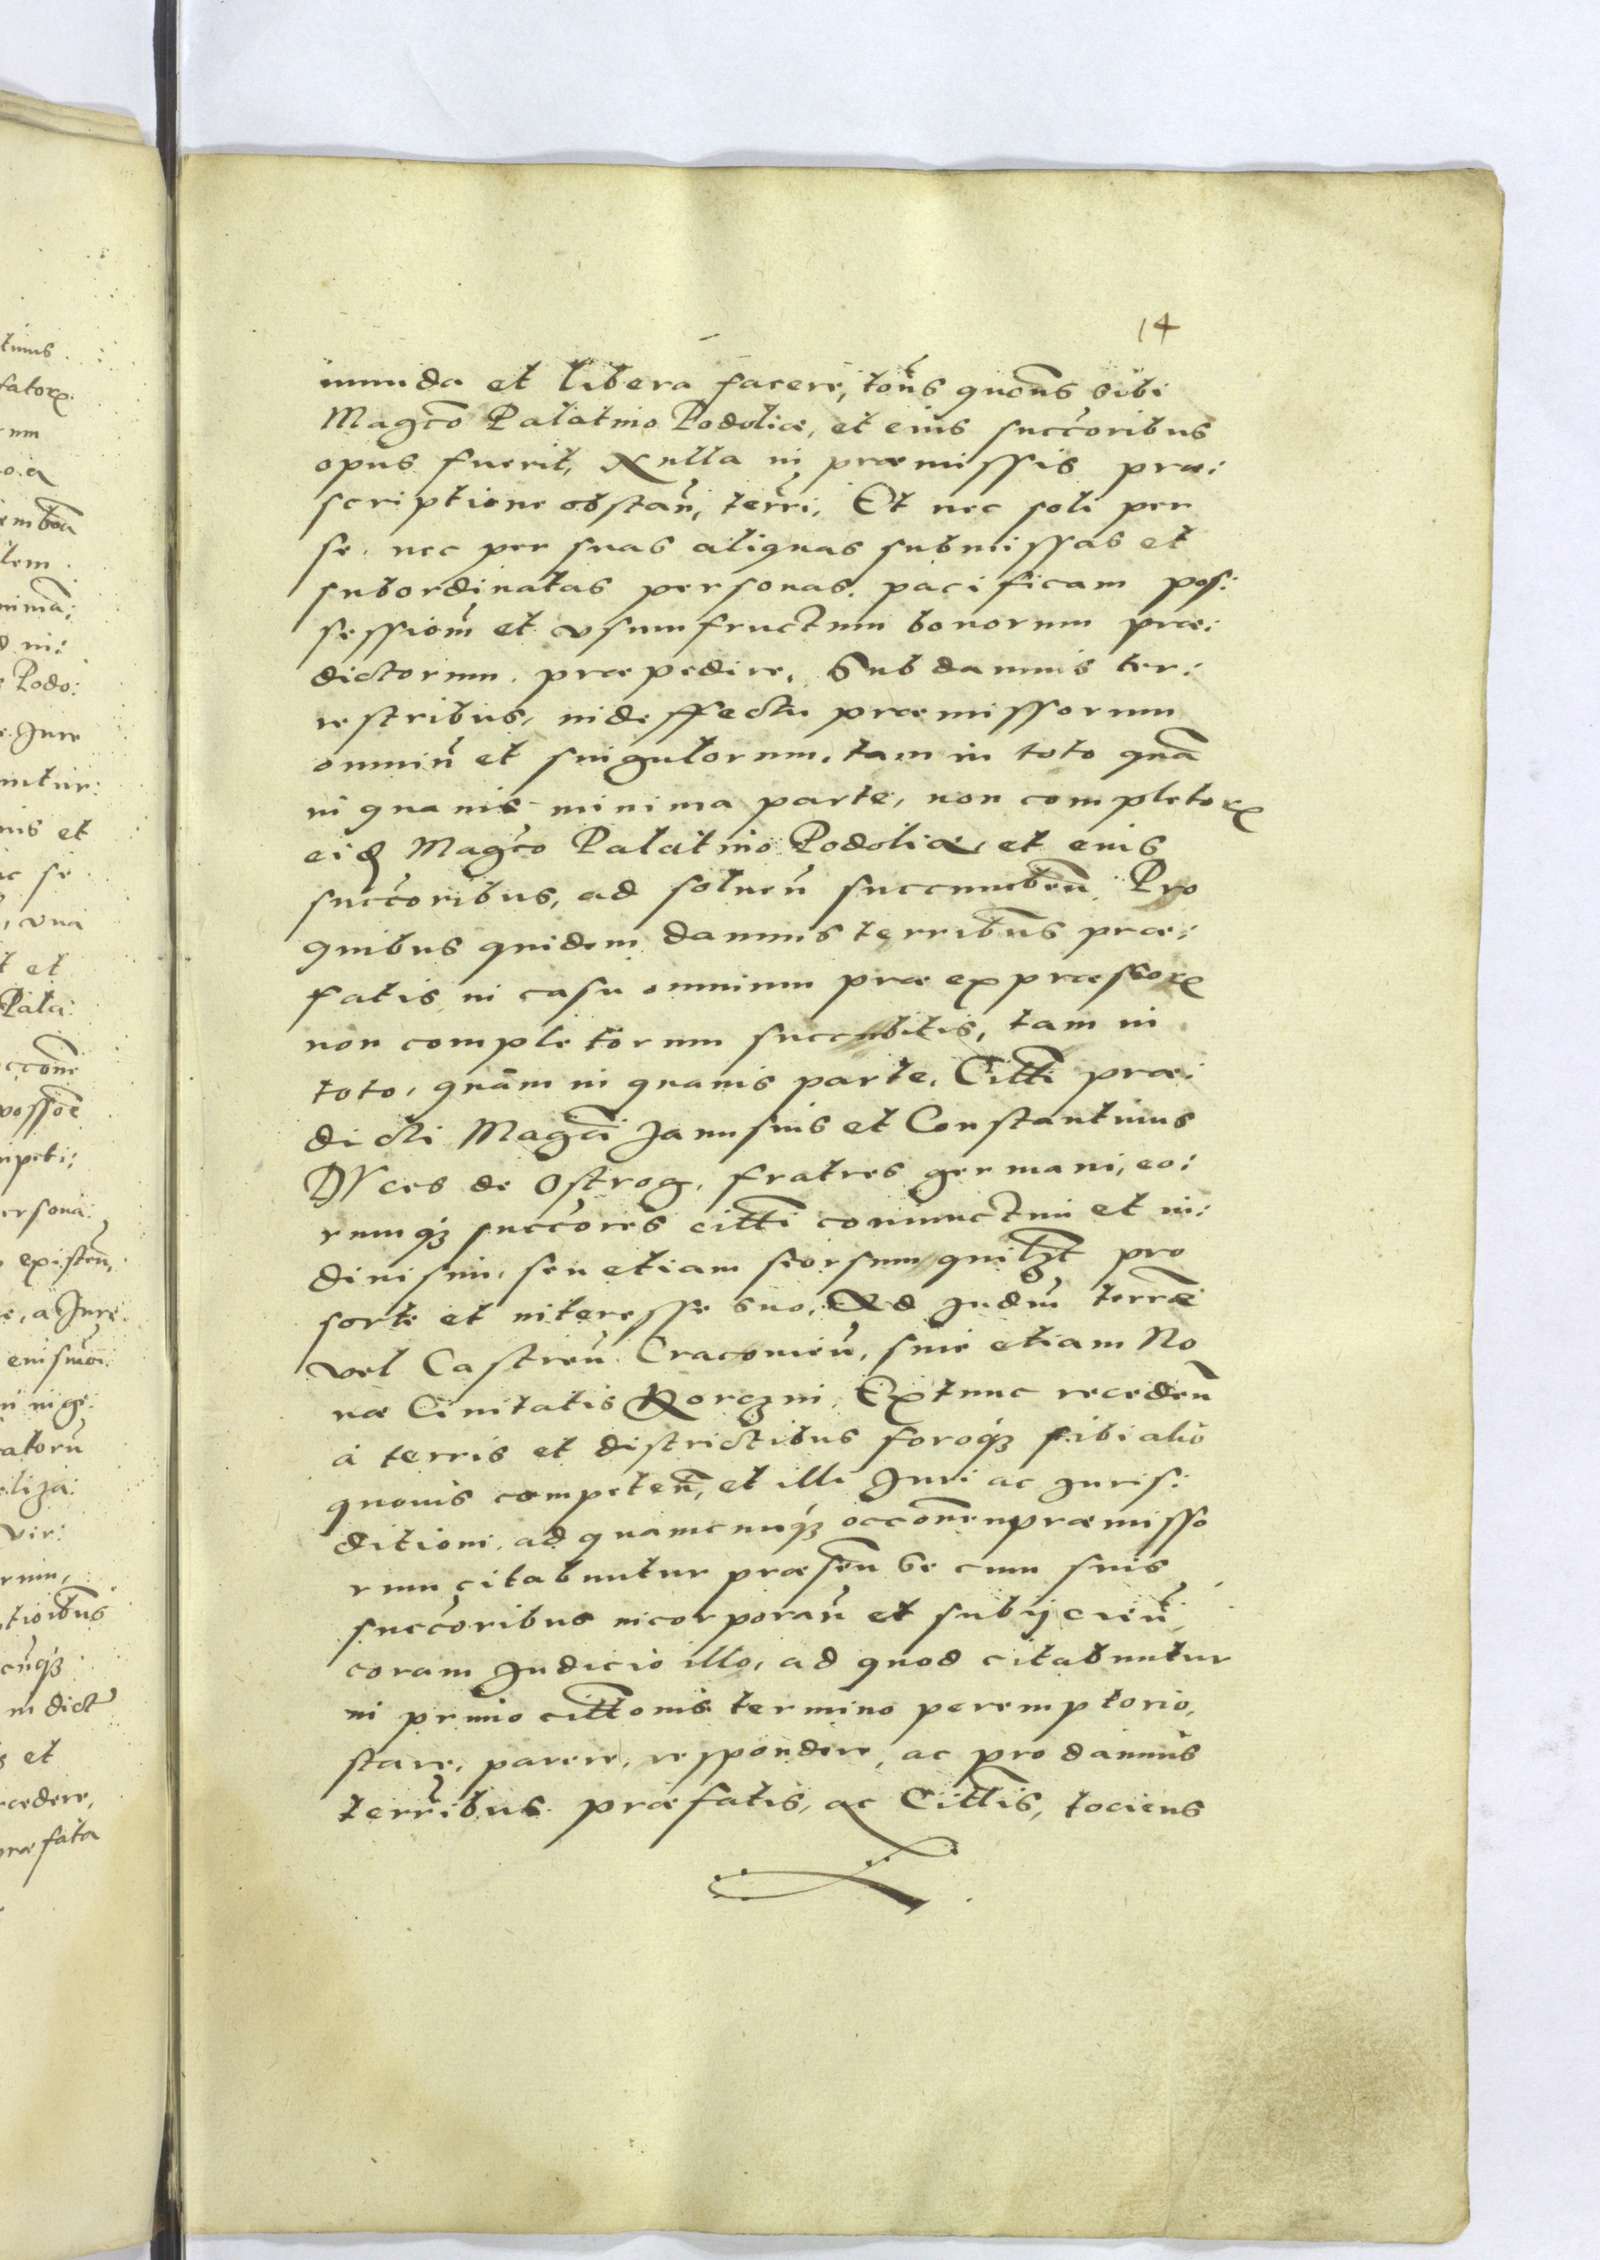 14
munda et libera facere, tot͞ns quot͞ns sibi
Magco Palatino Podoliæ, et eius succ͞oribus
opus fuerit, Nulla in præmissis præ:
scriptione obstan͞, terr͞ri. Et nec soli per
se nec per suas aliquas submissas et
subordinatas personas, pacificam pos:
session͞ et vsumfructum bonorum præ:
dictorum præpedire, Sub damnis ter:
restribus, in deffectu præmissorum
omniu͞ et singulorum, tam in toto qua͞
in quauis minima parte, non completorꝝ
eid Magco Palatino Podoliæ, et eius
succ͞oribus, ad soluen͞ succumben͞. Pro
quibus quidem damnis terrib͞us præ:
fatis in casu omnium præexpræssorꝝ
non completorum succubitis, tam in
toto, quam in quauis parte, Citt͞i præ:
dicti Magc͞i Janusius et Constantinus
Duces de Ostrog, fratres germani, eo:
rumqꝫ succ͞ores citt͞i coniunctim et in:
diuisim, seu etiam seorsum quilꝫt pro
sorte et interesse suo, Ad Judm͞ terræ͞
vel Castren͞ Cracouien͞, siue etiam No
uæ Ciuitatis Korczin, Extunc receden͞
à terris et districtibus foroqꝫ sibi alio
quouis competen͞, et illi Juri ac Juris:
ditioni, ad quamcunqꝫ occ͞onem præmisso
rum citabuntur præsen͞ se cum suis
succ͞oribus incorporan͞ et subijcien͞,
coram Judicio illo, ad quod citabuntur
in primo citt͞onis termino peremptorio,
stare, parere, respondere, ac pro damnis
terrr͞ibus præfatis, ac Citt͞is, tociens